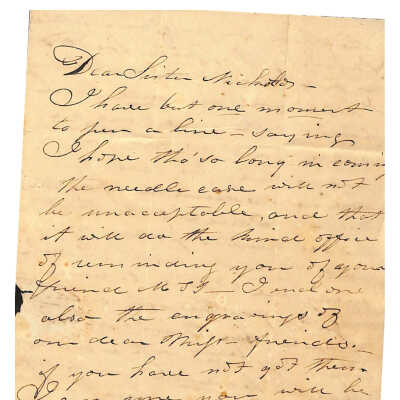 Dear Sister Nichols –
I have but one moment
to pen a line – saying
I hope tho' so long in coming
the needle case will not
be unacceptable, and that
it will do the kind office
of reminding you of your
friend M – I send one
also the engravings of
our dear Miss friends. –
if you have not got them
I am sure you will be